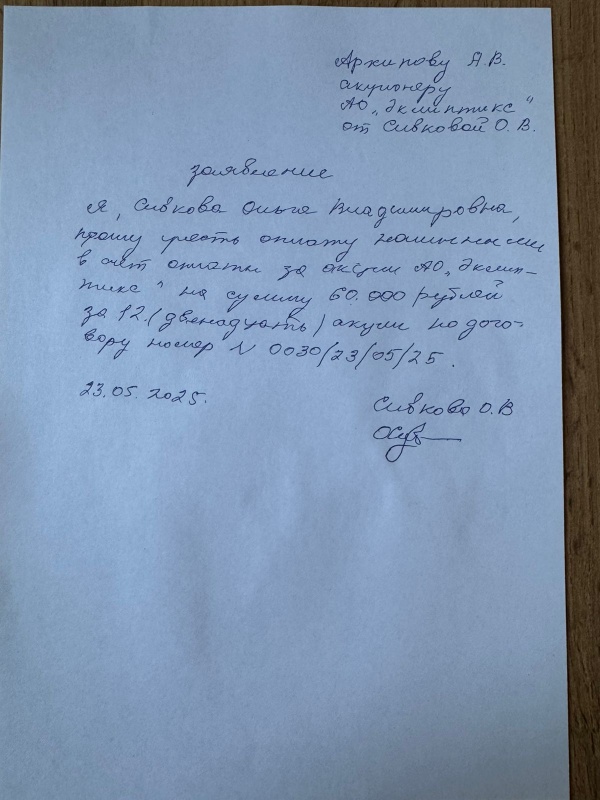 Архипову А.В.
акционеру
АО „Эклиптикс“
от Сивковой О.В.
заявление
Я, Сивкова Ольга Владимировна,
прошу учесть оплату наличными
в счёт оплаты за акции АО „Эклип-
тикс“ на сумму 60.000 рублей
за 12.(двенадцать) акции по дого-
вору номер N 0030/23/05/25.
23.05.2025.
Сивкова О.В